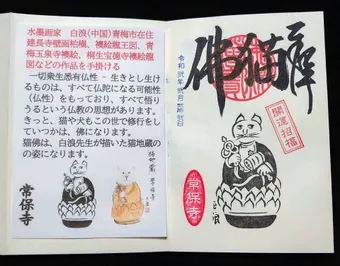 水墨画家　白浪(中国)青梅市在住
建長寺壁画柏槇、襖絵龍王図、青
梅玉泉寺襖絵、桐生宝徳寺襖絵龍
図などの作品を手掛ける
一切衆生悉有仏性 - 生きとし生け
るものは、すべて仏陀になる可能性
(仏性）をもっており、すべて悟り
うるという仏教の思想があります。
きっと、猫や犬もこの世で修行をし
ていつかは、佛になります。
猫佛は、白浪先生が描いた猫地蔵の
の姿になります。
常保寺
佛猫
開運招福
常保寺